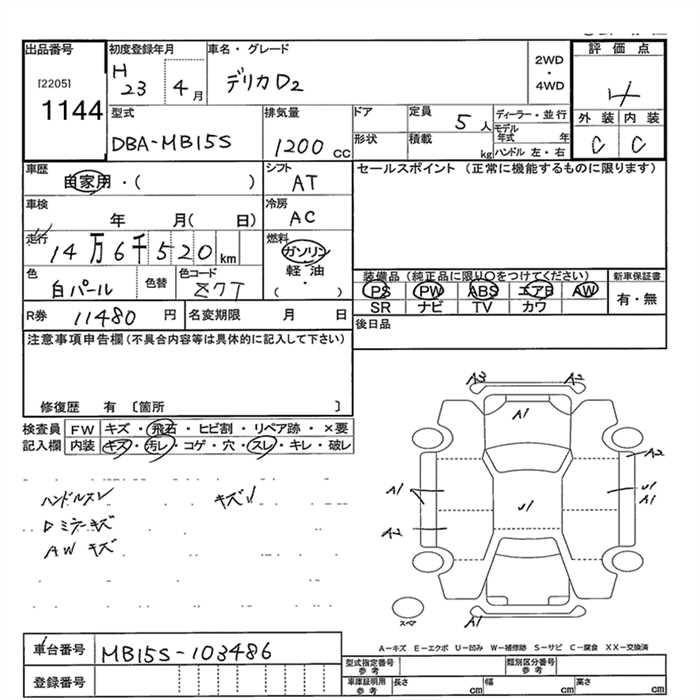 出品番号 初度登録年月 車名・グレード 2WD ・ 4WD 評価点
[2205] 1144
H 23 4月 デリカD2 4
型式 排気量 ドア 定員 5人 ディーラー・並行 外装 内装
DBA-MB15S 1200cc 形状 積載 kg モデル年式 年 C C
ハンドル 左・右
車歴 自家用・( ) シフト セールスポイント(正常に機能するものに限ります)
AT
車検 年 月( 日) 冷房 AC
走行 14万6千520km 燃料 ガソリン
軽油
・
( )
色 白パール 色替 色コード Z7T
装備品(純正品に限り○をつけてください) 新車保証書
PS PW ABS エアB AW 有・無
SR ナビ TV カワ
R券 11480円 名変期限 月 日 後日品
注意事項申告欄(不具合内容等は具体的に記入して下さい)
修復歴 有〔箇所 〕
検査員 FW キズ・飛石・ヒビ割・リペア跡・×要
記入欄 内装 キズ・汚レ・コゲ・穴・スレ・キレ・破レ
ハンドルスレ キズ
Dミラーキズ
AW キズ
A3 A2
A1
A2
A1 U1 U1
A1
A2
スペア A1
A-キズ E-エクボ U-凹み W-補修跡 S-サビ C-腐食 XX-交換済
車台番号 MB15S-103486
登録番号
型式指定番号 参考 類別区分番号 参考
車庫証明用 参考 長さ cm 幅 cm 高さ cm